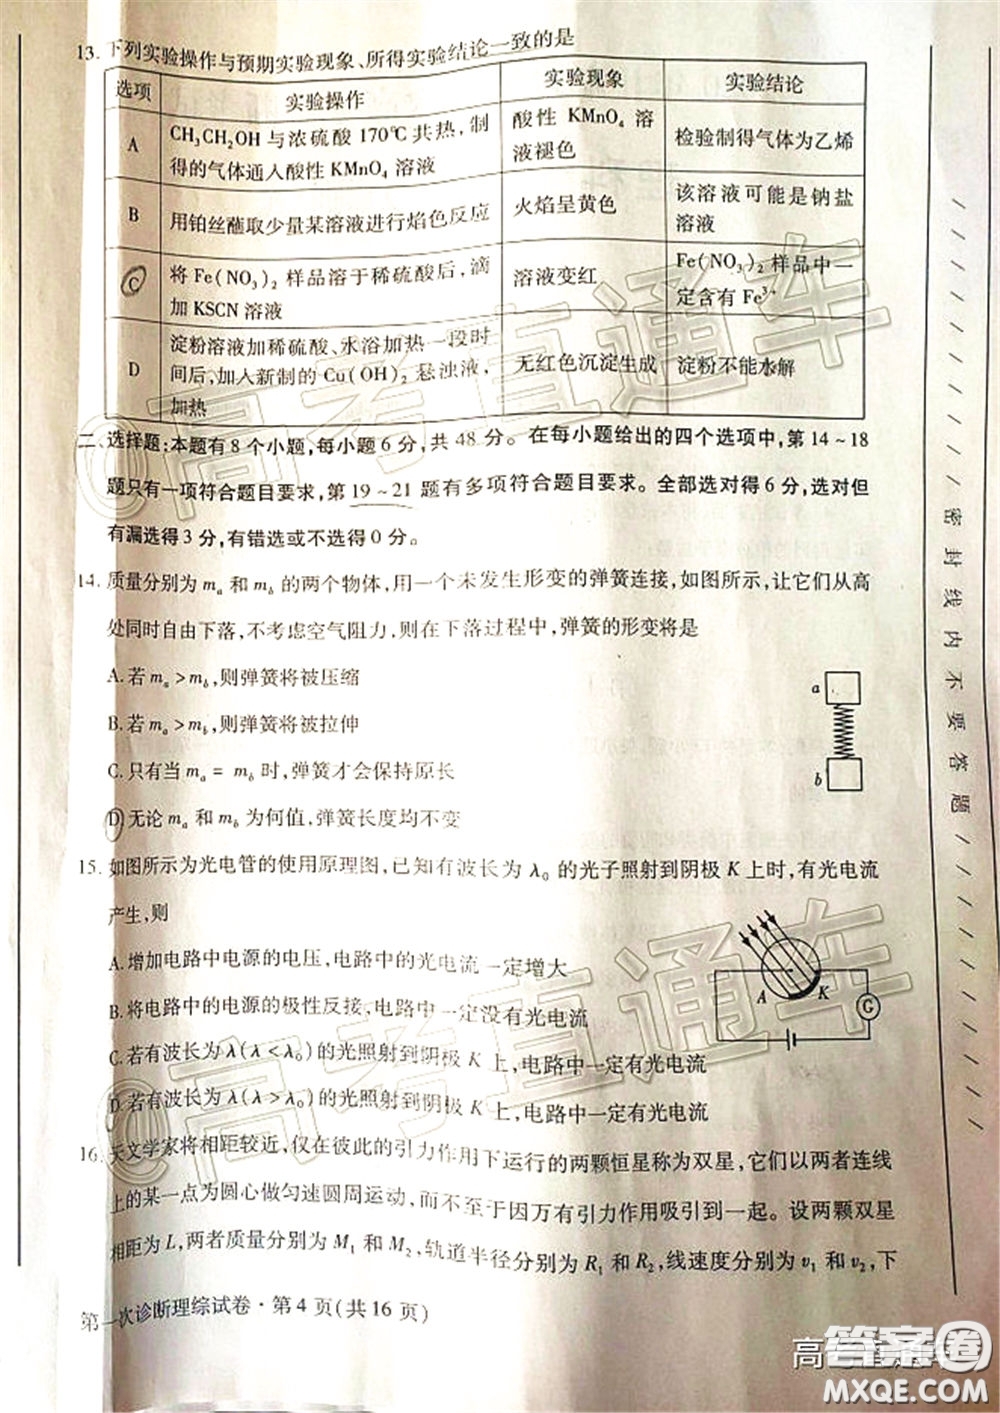 13. 下列实验操作与预期实验现象、所得实验结论一致的是
选项 实验操作 实验现象 实验结论
A CH₃CH₂OH 与浓硫酸 170℃ 共热，制得的气体通入酸性 KMnO₄ 溶液 酸性 KMnO₄ 溶液褪色 检验制得气体为乙烯
B 用铂丝蘸取少量某溶液进行焰色反应 火焰呈黄色 该溶液可能是钠盐溶液
C 将 Fe(NO₃)₂ 样品溶于稀硫酸后，滴加 KSCN 溶液 溶液变红 Fe(NO₃)₂ 样品中一定含有 Fe³⁺
D 淀粉溶液加稀硫酸、水浴加热一段时间后，加入新制的 Cu(OH)₂ 悬浊液，加热 无红色沉淀生成 淀粉不能水解
二、选择题：本题有 8 个小题，每小题 6 分，共 48 分。在每小题给出的四个选项中，第 14～18
题只有一项符合题目要求，第 19～21 题有多项符合题目要求。全部选对得 6 分，选对但
有漏选得 3 分，有错选或不选得 0 分。
14. 质量分别为 mₐ 和 m_b 的两个物体，用一个未发生形变的弹簧连接，如图所示，让它们从高
处同时自由下落，不考虑空气阻力，则在下落过程中，弹簧的形变将是
A. 若 mₐ > m_b，则弹簧将被压缩
B. 若 mₐ > m_b，则弹簧将被拉伸
C. 只有当 mₐ = m_b 时，弹簧才会保持原长
D. 无论 mₐ 和 m_b 为何值，弹簧长度均不变
a
b
15. 如图所示为光电管的使用原理图，已知有波长为 λ₀ 的光子照射到阴极 K 上时，有光电流
产生，则
A. 增加电路中电源的电压，电路中的光电流一定增大
B. 将电路中的电源的极性反接，电路中一定没有光电流
C. 若有波长为 λ(λ < λ₀) 的光照射到阴极 K 上，电路中一定有光电流
D. 若有波长为 λ(λ > λ₀) 的光照射到阴极 K 上，电路中一定有光电流
A K G
16. 天文学家将相距较近，仅在彼此的引力作用下运行的两颗恒星称为双星，它们以两者连线
上的某一点为圆心做匀速圆周运动，而不至于因万有引力作用吸引到一起。设两颗双星
相距为 L，两者质量分别为 M₁ 和 M₂，轨道半径分别为 R₁ 和 R₂，线速度分别为 v₁ 和 v₂，下
第一次诊断理综试卷·第 4 页（共 16 页）
密封线内不要答题
@高考直通车
@高考直通车
答案圈
MXQE.COM